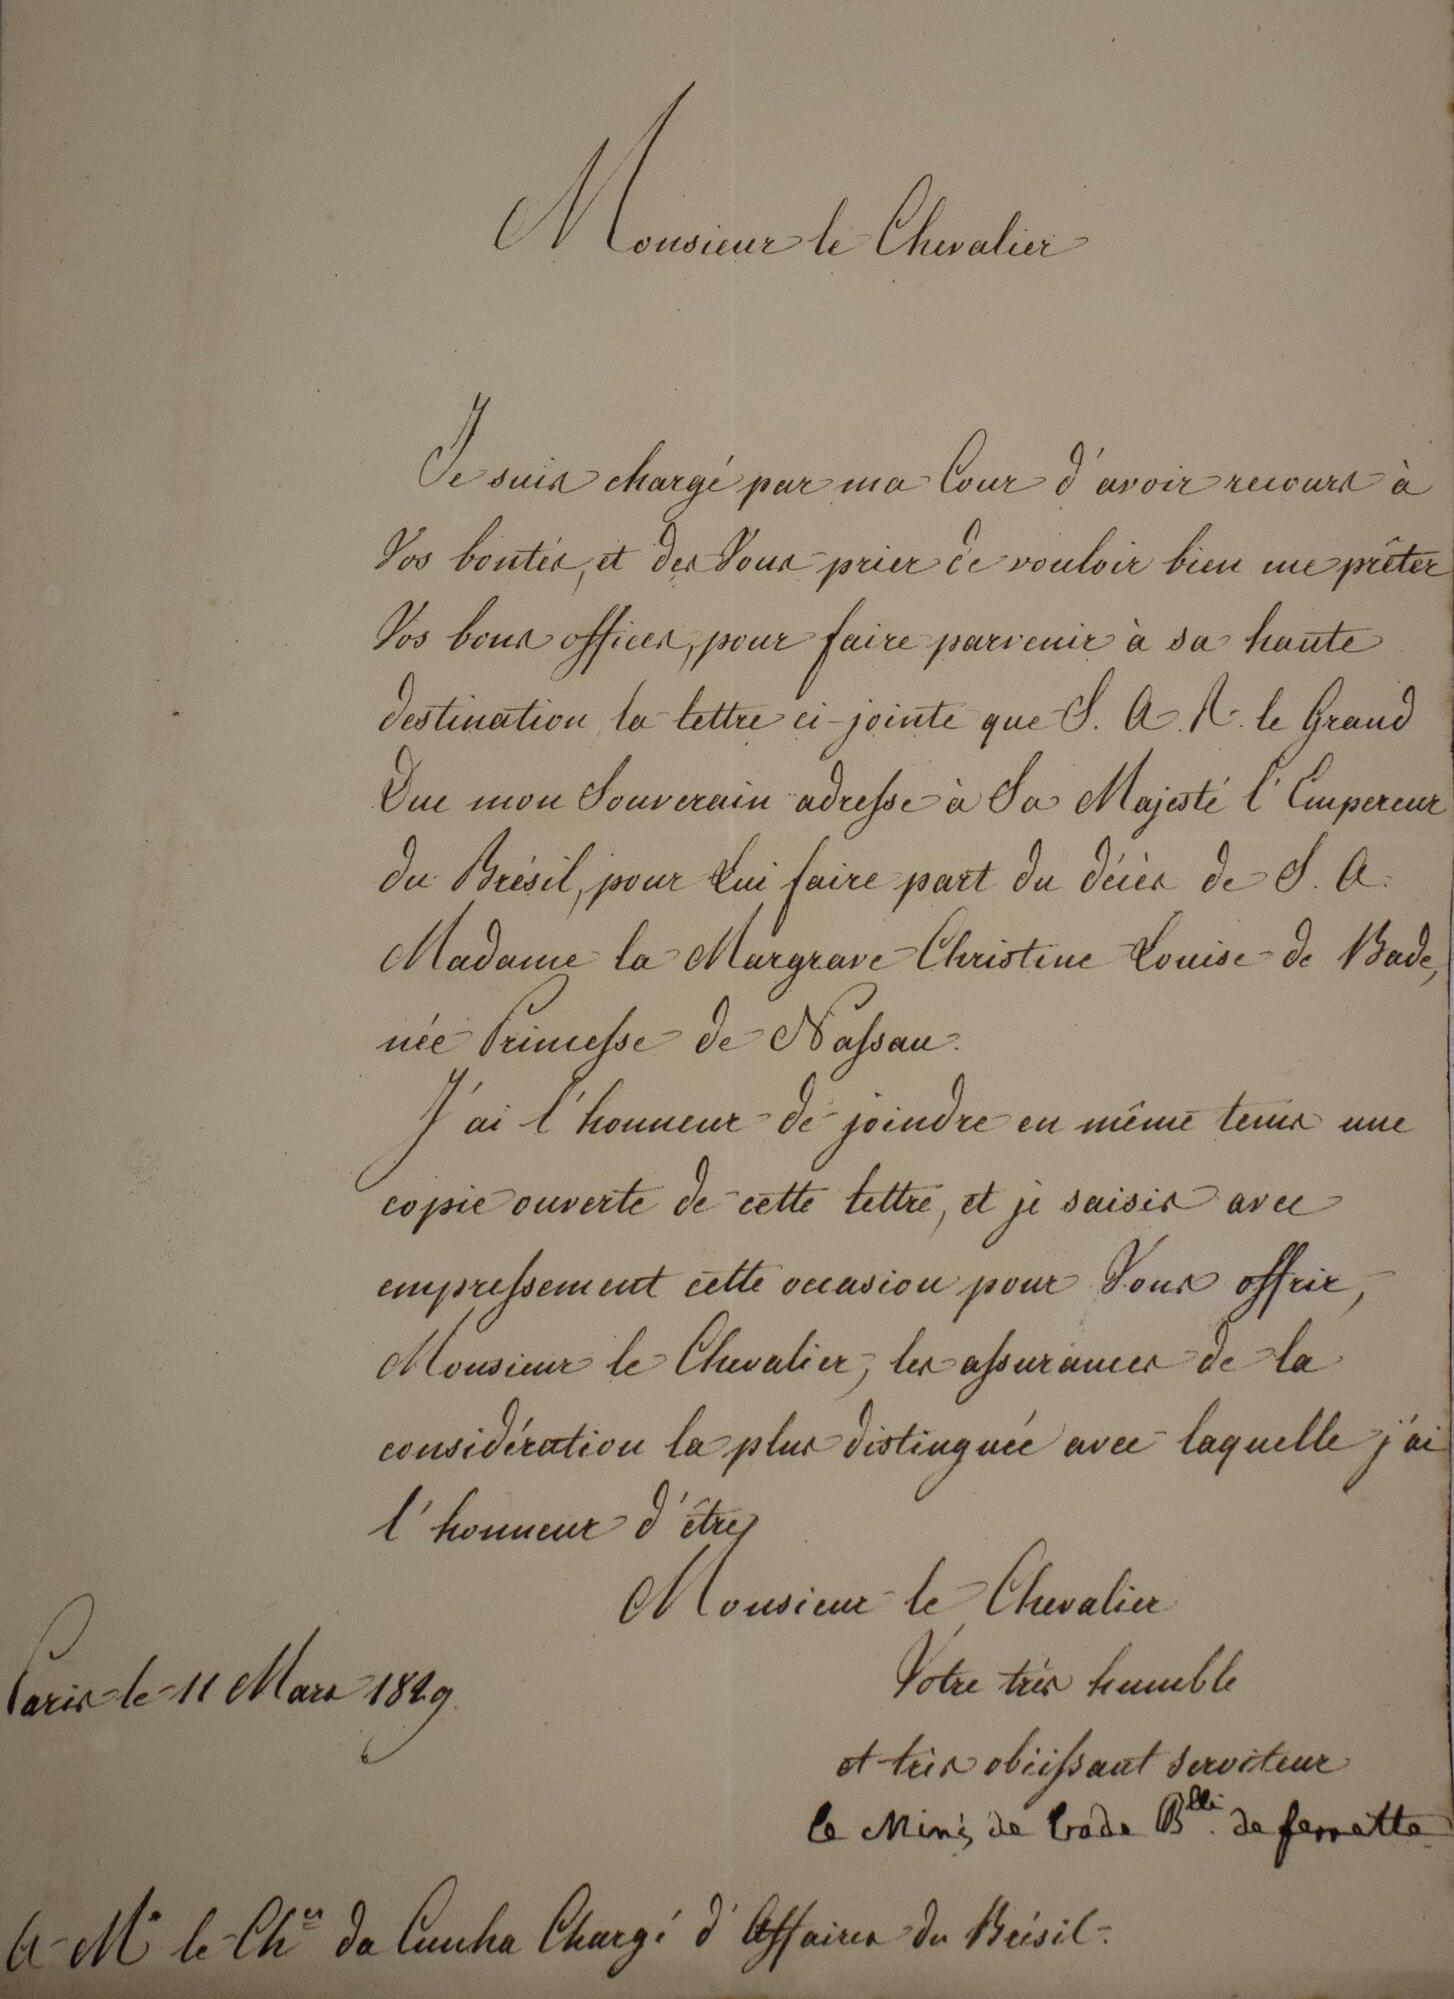 Monsieur le Chevalier
Je suis chargé par ma Cour d'avoir recours à
Vos bontés, et de Vous prier de vouloir bien me prêter
Vos bons offices, pour faire parvenir à sa haute
destination la lettre ci-jointe que S. A. R. le Grand
Duc mon Souverain adresse à Sa Majesté l'Empereur
du Brésil, pour Lui faire part du décès de S. A.
Madame la Margrave Christine Louise de Bade,
née Princesse de Nassau.
J'ai l'honneur de joindre en même tems une
copie ouverte de cette lettre, et je saisis avec
empressement cette occasion pour Vous offrir,
Monsieur le Chevalier, les assurances de la
considération la plus distinguée avec laquelle j'ai
l'honneur d'être,
Monsieur le Chevalier
Votre très humble
Paris le 11 Mars 1829.
et très obéissant serviteur
le Min: de bade Blli. de ferrette
A Mr le Cher da Cunha Chargé d'Affaires du Brésil.